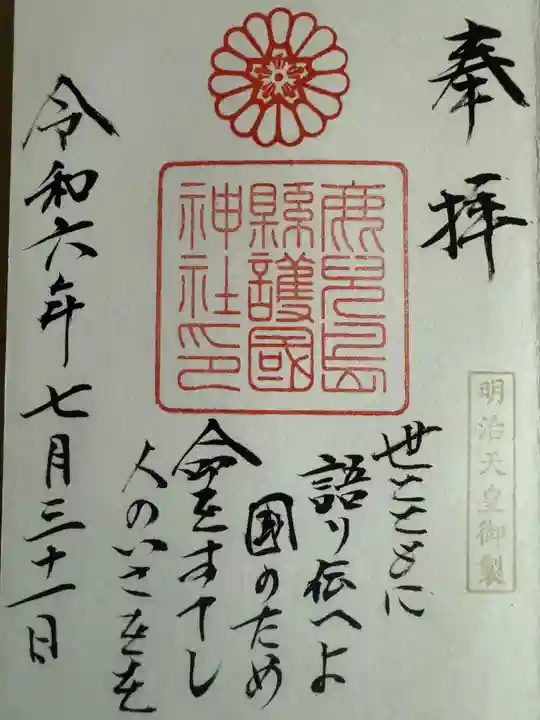 奉拝
明治天皇御製
鹿児島
縣護國
神社印
世とともに
語り伝へよ
国のため
命をすてし
人のいさをを
令和六年七月三十一日